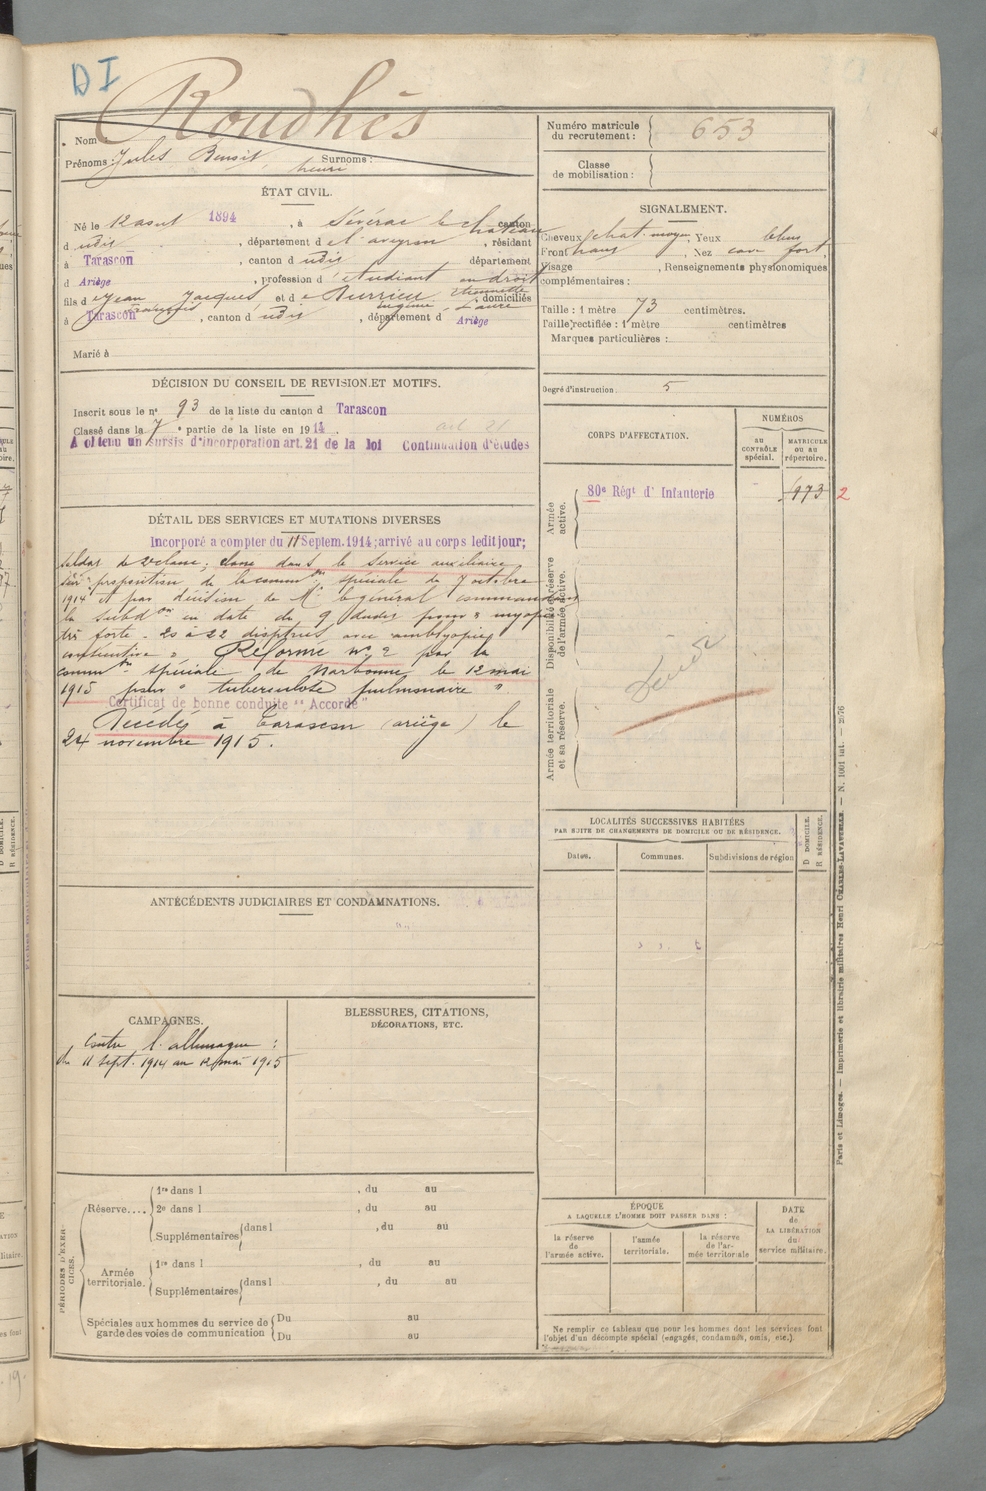 DI
Roudhès
Nom
Prénoms : Jules Benoit Surnoms :
henri
ÉTAT CIVIL.
Né le 12 aout 1894, à Sévérac le château canton
d udit, département d el aveyron, résidant
à Tarascon, canton d udit département
d Ariège, profession d étudiant en droit
fils d e Jean Jacques et d e Durrieu domiciliés
françois eugénie Laure
à Tarascon, canton d udit, département d Ariège
Marié à
DÉCISION DU CONSEIL DE REVISION ET MOTIFS.
Inscrit sous le n° 93 de la liste du canton d Tarascon
Classé dans la 7e partie de la liste en 1914. art 21
A obtenu un sursis d'incorporation art. 21 de la loi Continuation d'études
DÉTAIL DES SERVICES ET MUTATIONS DIVERSES
Incorporé a compter du 11 Septem. 1914; arrivé au corps ledit jour;
soldat de 2e classe; classé dans le service auxiliaire
sur proposition de la common spéciale du 7 octobre
1914 et par décision de Mr le général commandant
la subdon en date du 9 dudit pour " myopie
très forte - 20 à 22 dioptries avec amblyopie
consécutive " Réformé n° 2 par la
common spéciale de Narbonne le 12 mai
1915 pour " tuberculose pulmonaire "
Certificat de bonne conduite " Accordé "
Décédé à Tarascon (ariège) le
24 novembre 1915.
ANTÉCÉDENTS JUDICIAIRES ET CONDAMNATIONS.
CAMPAGNES.
Contre l'allemagne :
du 11 sept. 1914 au 12 mai 1915
BLESSURES, CITATIONS,
DÉCORATIONS, ETC.
PÉRIODES D'EXERCICES.
Réserve....
1re dans l , du au
2e dans l , du au
Supplémentaires dans l , du au
Armée territoriale.
1re dans l , du au
Supplémentaires dans l , du au
Spéciales aux hommes du service de garde des voies de communication
Du au
Du au
Numéro matricule
du recrutement : 653
Classe
de mobilisation :
SIGNALEMENT.
Cheveux chat. moyen, Yeux bleus
Front haut, Nez cave fort,
Visage , Renseignements physionomiques
complémentaires :
Taille : 1 mètre 73 centimètres.
Taille rectifiée : 1 mètre centimètres
Marques particulières :
Degré d'instruction. 5
CORPS D'AFFECTATION.
NUMÉROS
AU CONTRÔLE spécial.
MATRICULE OU AU répertoire.
Armée active.
80e Régt d' Infanterie 1973 2
Disponibilité et réserve de l'armée active.
Armée territoriale et sa réserve.
LOCALITÉS SUCCESSIVES HABITÉES
PAR SUITE DE CHANGEMENTS DE DOMICILE OU DE RÉSIDENCE.
D DOMICILE.
R RÉSIDENCE.
Dates. Communes. Subdivisions de région
ÉPOQUE
A LAQUELLE L'HOMME DOIT PASSER DANS :
la réserve de l'armée active.
l'armée territoriale.
la réserve de l'armée territoriale
DATE de LA LIBÉRATION du service militaire.
Ne remplir ce tableau que pour les hommes dont les services font
l'objet d'un décompte spécial (engagés, condamnés, omis, etc.).
Paris et Limoges. — Imprimerie et librairie militaires Henri CHARLES-LAVAUZELLE. — N. 1001 int. — 2676